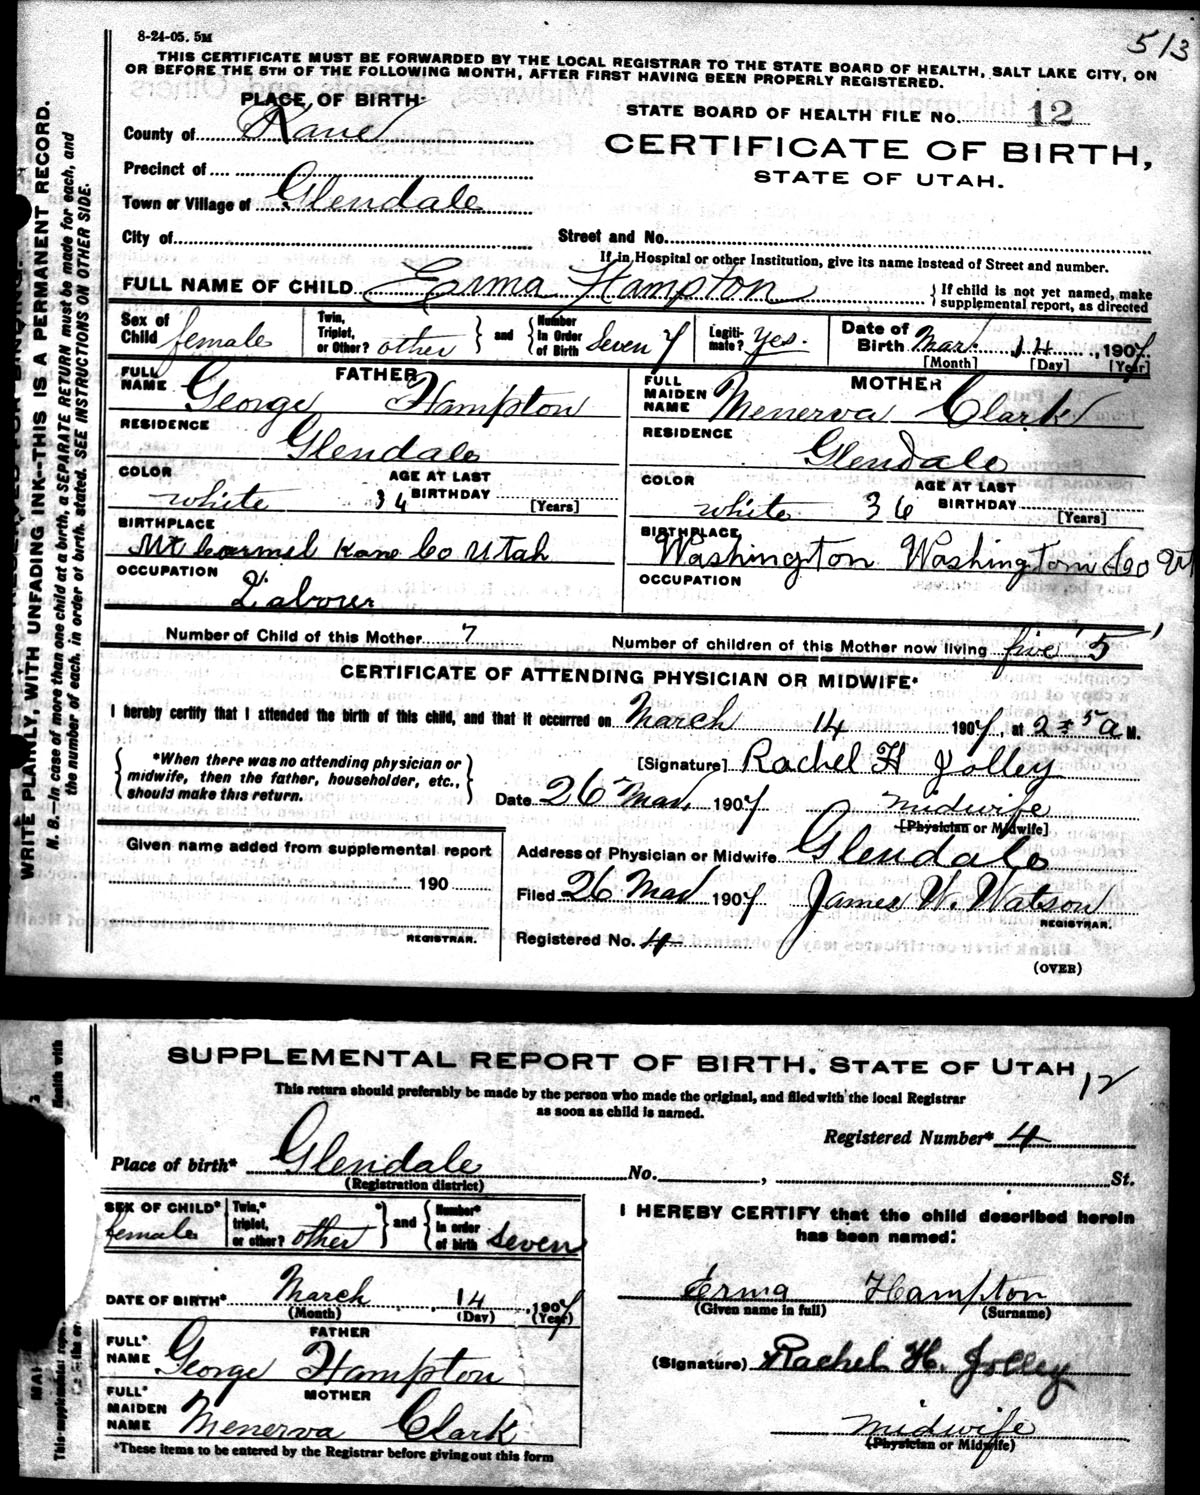 8-24-05. 5M
513
THIS CERTIFICATE MUST BE FORWARDED BY THE LOCAL REGISTRAR TO THE STATE BOARD OF HEALTH, SALT LAKE CITY, ON
OR BEFORE THE 5TH OF THE FOLLOWING MONTH, AFTER FIRST HAVING BEEN PROPERLY REGISTERED.
PLACE OF BIRTH
County of Kane
Precinct of
Town or Village of Glendale
City of
STATE BOARD OF HEALTH FILE No. 12
CERTIFICATE OF BIRTH,
STATE OF UTAH.
Street and No.
If in Hospital or other Institution, give its name instead of Street and number.
FULL NAME OF CHILD Erma Hampton
If child is not yet named, make
supplemental report, as directed
Sex of
Child female
Twin,
Triplet,
or Other? other
and
Number
In Order
of Birth Seven 7
Legiti-
mate? Yes.
Date of
Birth Mar. 14, 1907
[Month] [Day] [Year]
FATHER
FULL
NAME George Hampton
RESIDENCE
Glendale
COLOR
white
AGE AT LAST
BIRTHDAY 34
[Years]
BIRTHPLACE
Mt Carmel Kane Co Utah
OCCUPATION
Laborer
MOTHER
FULL
MAIDEN
NAME Menerva Clark
RESIDENCE
Glendale
COLOR
white
AGE AT LAST
BIRTHDAY 36
[Years]
BIRTHPLACE
Washington Washington Co Ut
OCCUPATION
Number of Child of this Mother 7
Number of children of this Mother now living five 5
CERTIFICATE OF ATTENDING PHYSICIAN OR MIDWIFE*
I hereby certify that I attended the birth of this child, and that it occurred on March 14 1907, at 2 5 a M.
*When there was no attending physician or
midwife, then the father, householder, etc.,
should make this return.
[Signature] Rachel H Jolley
Date 26 Mar. 1907 midwife
[Physician or Midwife]
Given name added from supplemental report
190
REGISTRAR.
Address of Physician or Midwife Glendale
Filed 26 Mar 1907 James W. Watson
REGISTRAR.
Registered No. 4
(OVER)
WRITE PLAINLY, WITH UNFADING INK--THIS IS A PERMANENT RECORD.
N. B.--In case of more than one child at a birth, a SEPARATE RETURN must be made for each, and
the number of each, in order of birth, stated. SEE INSTRUCTIONS ON OTHER SIDE.
SUPPLEMENTAL REPORT OF BIRTH. STATE OF UTAH
12
This return should preferably be made by the person who made the original, and filed with the local Registrar
as soon as child is named.
Registered Number* 4
Place of birth* Glendale No. , St.
(Registration district)
SEX OF CHILD*
female
Twin,*
triplet,
or other? other
and
Number*
in order
of birth seven
DATE OF BIRTH* March 14, 1907
(Month) (Day) (Year)
FATHER
FULL*
NAME George Hampton
MOTHER
FULL*
MAIDEN
NAME Menerva Clark
*These items to be entered by the Registrar before giving out this form
I HEREBY CERTIFY that the child described herein
has been named:
Erma Hampton
(Given name in full) (Surname)
(Signature) Rachel H. Jolley
midwife
(Physician or Midwife)